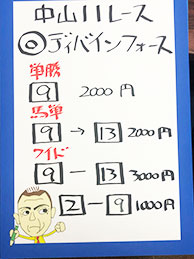 中山11レース
◎ディバインフォース
単勝
9 2000円
馬単
9→13 2000円
ワイド
9－13 3000円
2－9 1000円